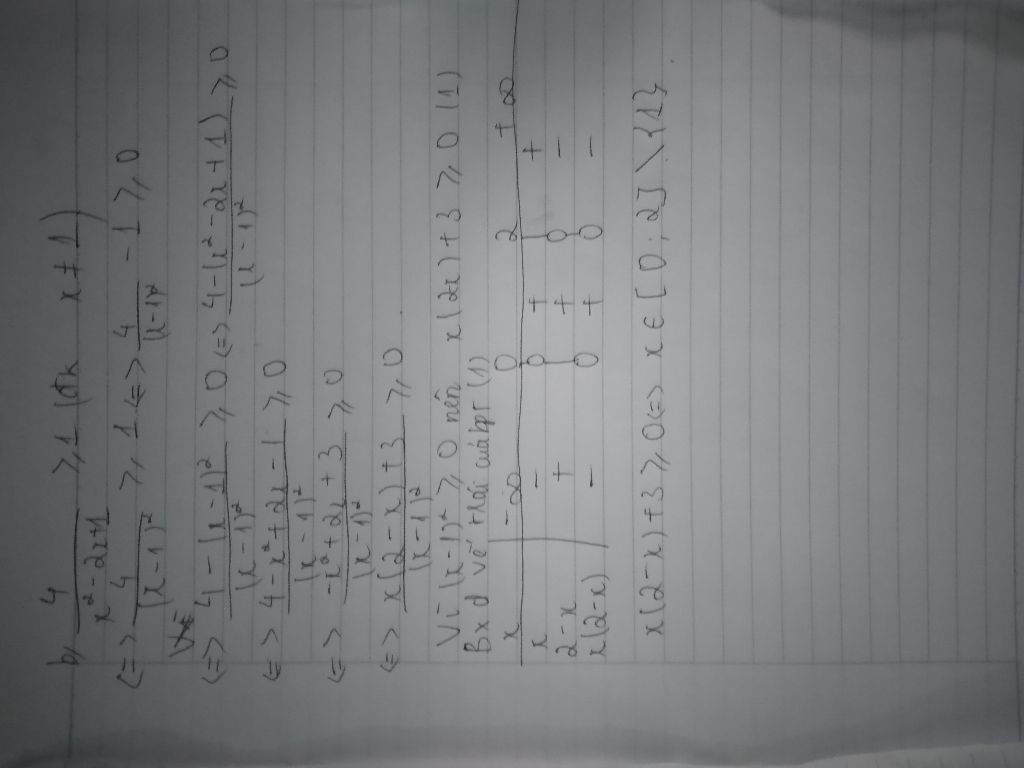 b, 4/(x² - 2x+1) ≥ 1 (đk x ≠ 1)
<=> 4/(x-1)² ≥ 1 <=> 4/(x-1)² - 1 ≥ 0
<=> (4 - (x-1)²)/(x-1)² ≥ 0 <=> (4-(x²-2x+1))/(x-1)² ≥ 0
<=> (4-x²+2x-1)/(x-1)² ≥ 0
<=> (-x²+2x+3)/(x-1)² ≥ 0
<=> (x(2-x)+3)/(x-1)² ≥ 0
Vì (x-1)² ≥ 0 nên x(2x)+3 ≥ 0 (1)
Bxd vế trái của bpt (1)
x -∞ 0 2 +∞
x - 0 + | +
2-x + | + 0 -
x(2-x) - 0 + 0 -
x(2-x)+3 ≥ 0 <=> x ∈ [0; 2] \ {1}.